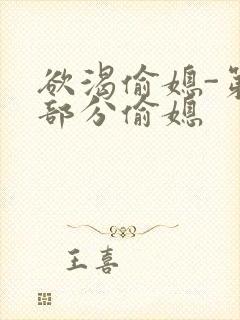 欲渴偷媳-第
部分偷媳
王喜